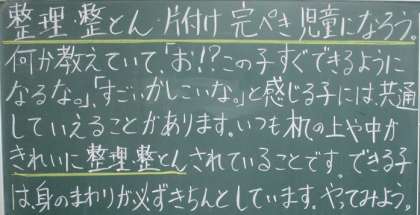 整理整とん・片付け 完ぺき児童になろう。
何か教えていて、「お!?この子すぐできるように
なるな。」、「すごい。かしこいな。」と感じる子には、共通
していえることがあります。いつも机の上や中が
きれいに整理整とんされていることです。できる子
は、身のまわりが必ずきちんとしています。やってみよう。